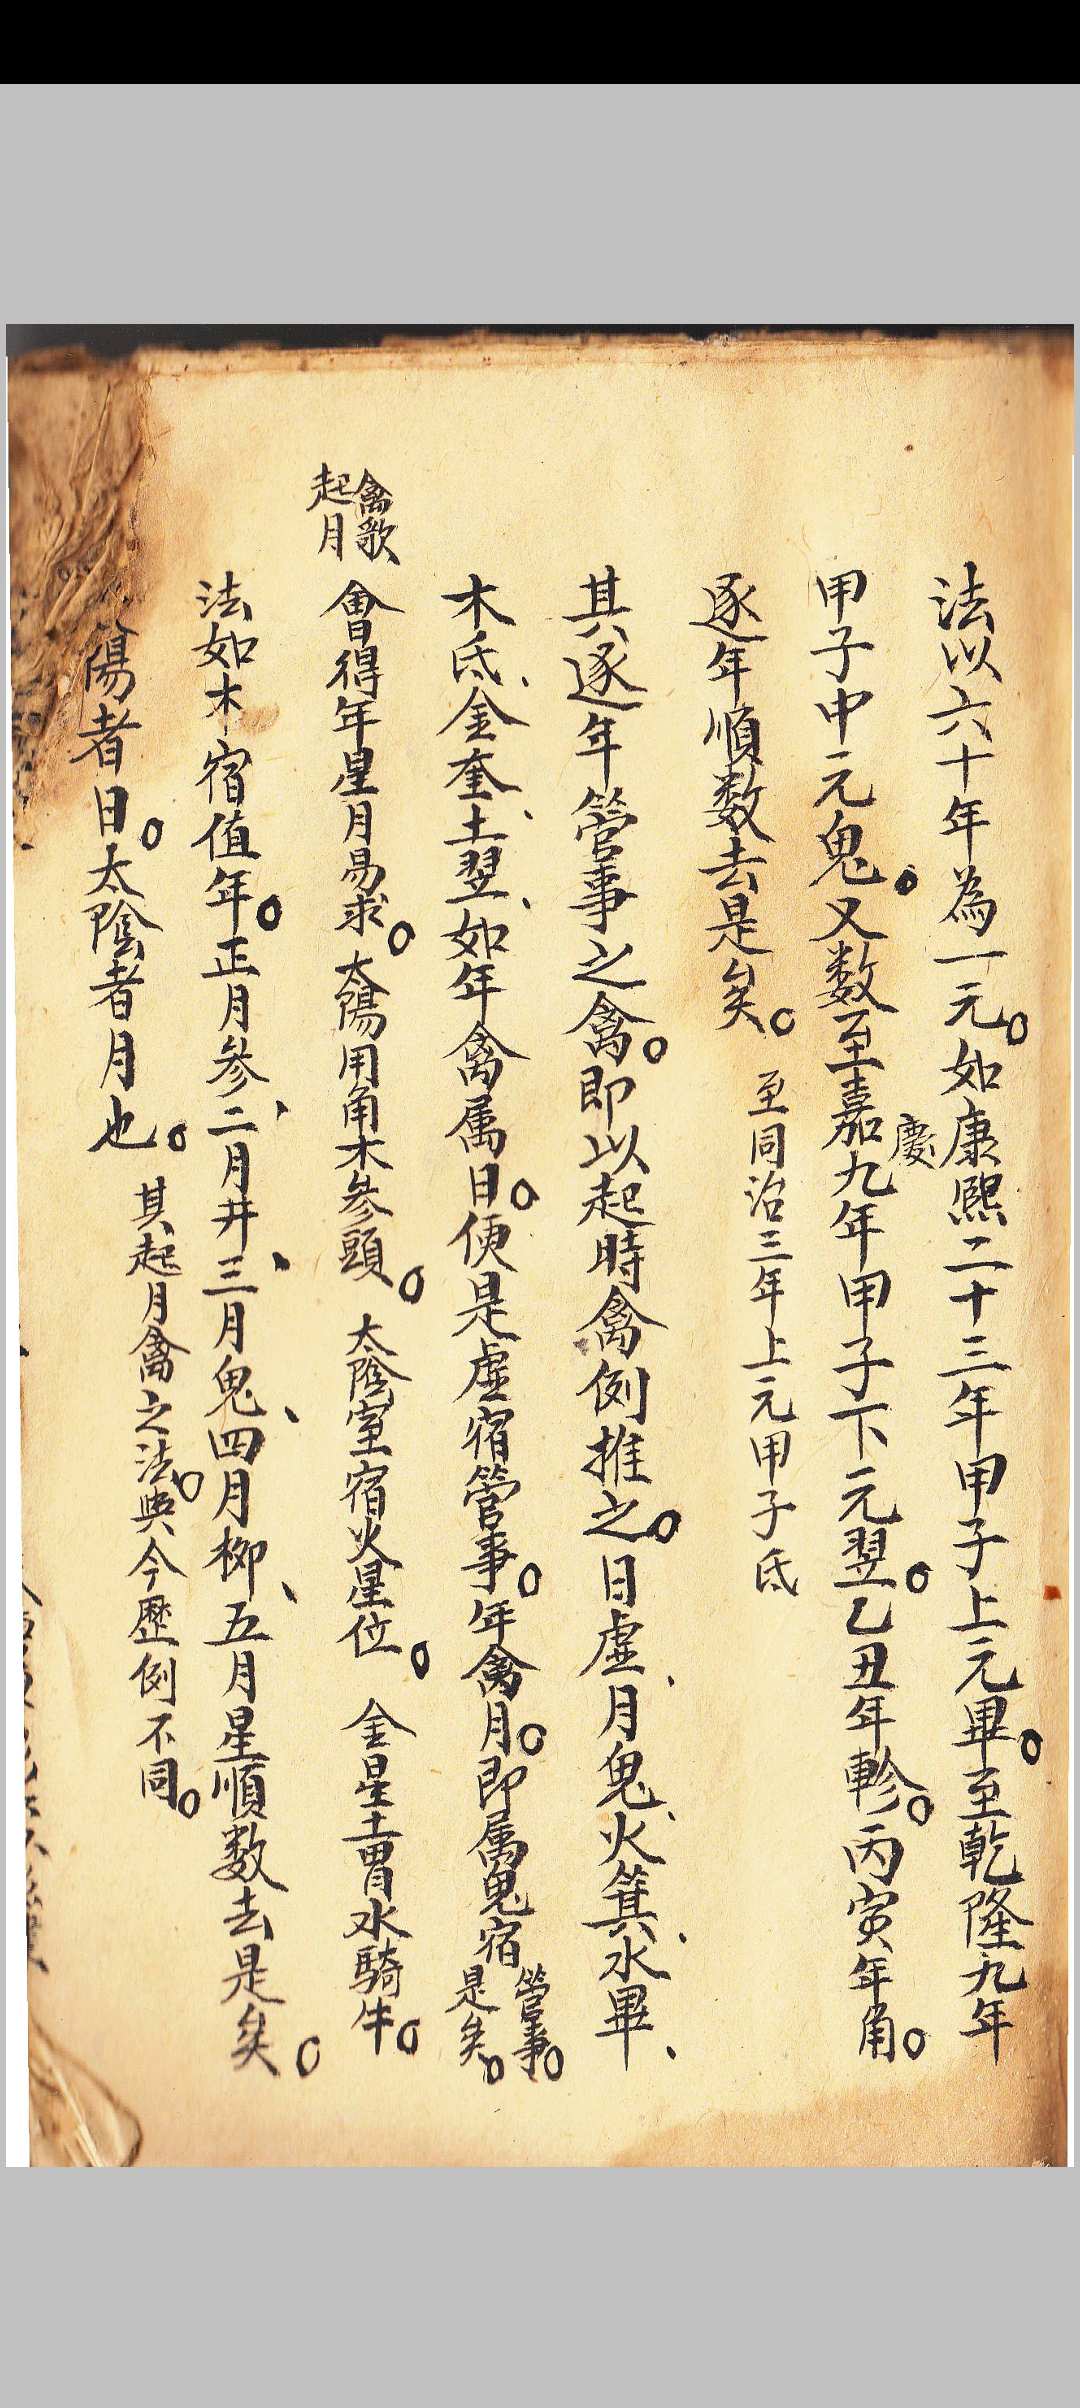 法以六十年為一元。如康熙二十三年甲子上元畢。至乾隆九年
甲子中元鬼。又数至嘉慶九年甲子下元翌。乙丑年軫。丙寅年角。
逐年順数去是矣。至同治三年上元甲子氐
其逐年管事之禽。即以起時禽例推之。日虛、月鬼、火箕、水畢、
木氐、金奎、土翌、如年禽属日。便是虛宿管事。年禽月。即属鬼宿管事。是矣。
禽歌
起月
會得年星月易求。太陽用角木參頭。太陰室宿火星位。金星土胃水騎牛。
法如木宿值年。正月參、二月井、三月鬼、四月柳、五月星順数去是矣。
陽者日。太陰者月也。其起月禽之法。與今歷例不同。